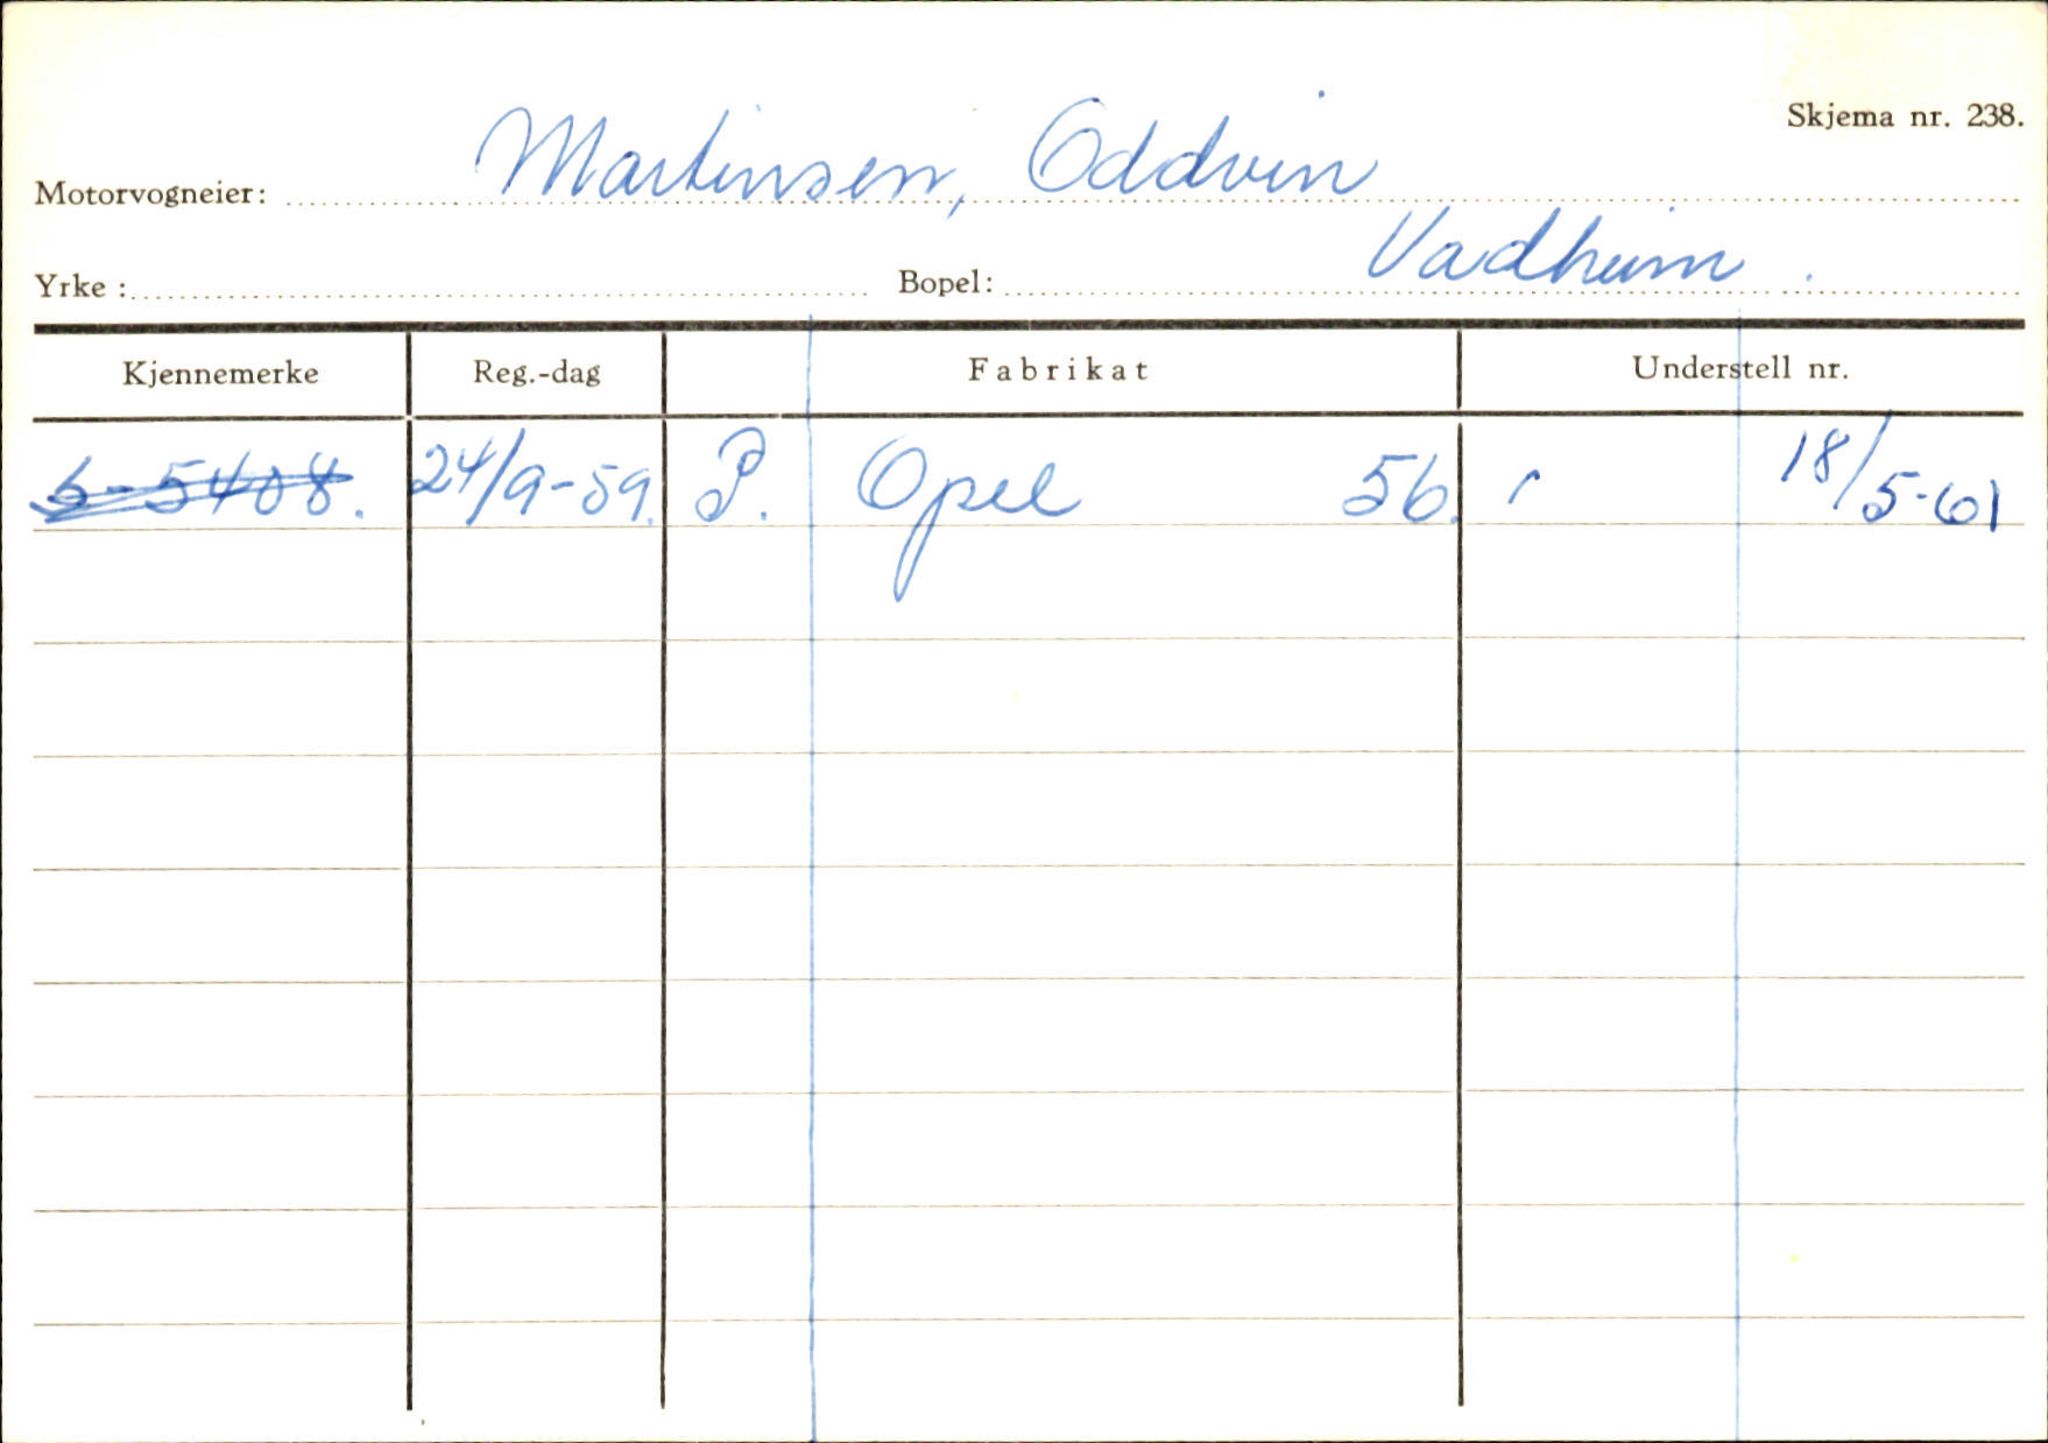 Skjema nr. 238.
Motorvogneier: Martinsen, Oddvin
Yrke: Bopel: Vadheim.
Kjennemerke Reg.-dag Fabrikat Understell nr.
S-5408. 24/9-59. P. Opel 56. 18/5-61